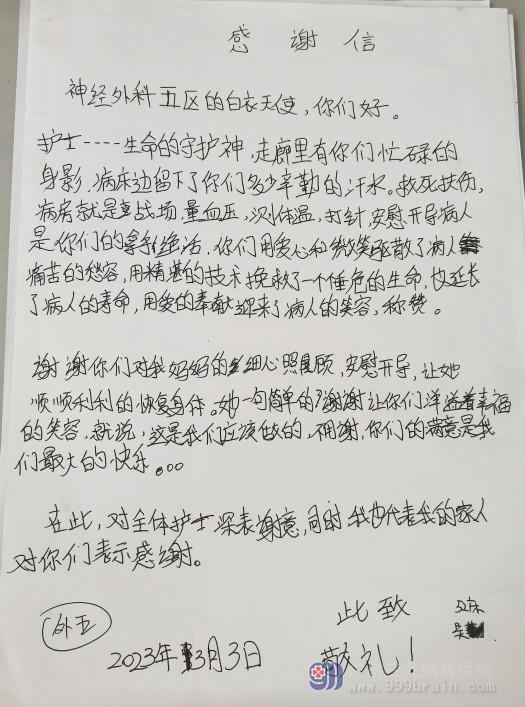 感谢信
神经外科五区的白衣天使，你们好。
护士----生命的守护神，走廊里有你们忙碌的
身影，病床边留下了你们多少辛勤的汗水。救死扶伤，
病房就是战场，量血压，测体温，打针，安慰开导病人
是你们的拿手绝活，你们用爱心和微笑驱散了病人
痛苦的愁容，用精湛的技术挽救了一个垂危的生命，也延长
了病人的寿命，用爱的奉献迎来了病人的笑容，称赞。
谢谢你们对我妈妈的细心照顾，安慰开导，让她
顺顺利利的恢复身体。她一句简单的谢谢让你们洋溢着幸福
的笑容，就说，这是我们应该做的，不用谢，你们的满意是我
们最大的快乐。。。
在此，对全体护士深表谢意，同时我也代表我的家人
对你们表示感谢。
此致
敬礼！
外五
2023年3月3日
吴
脑科医院
www.999brain.com